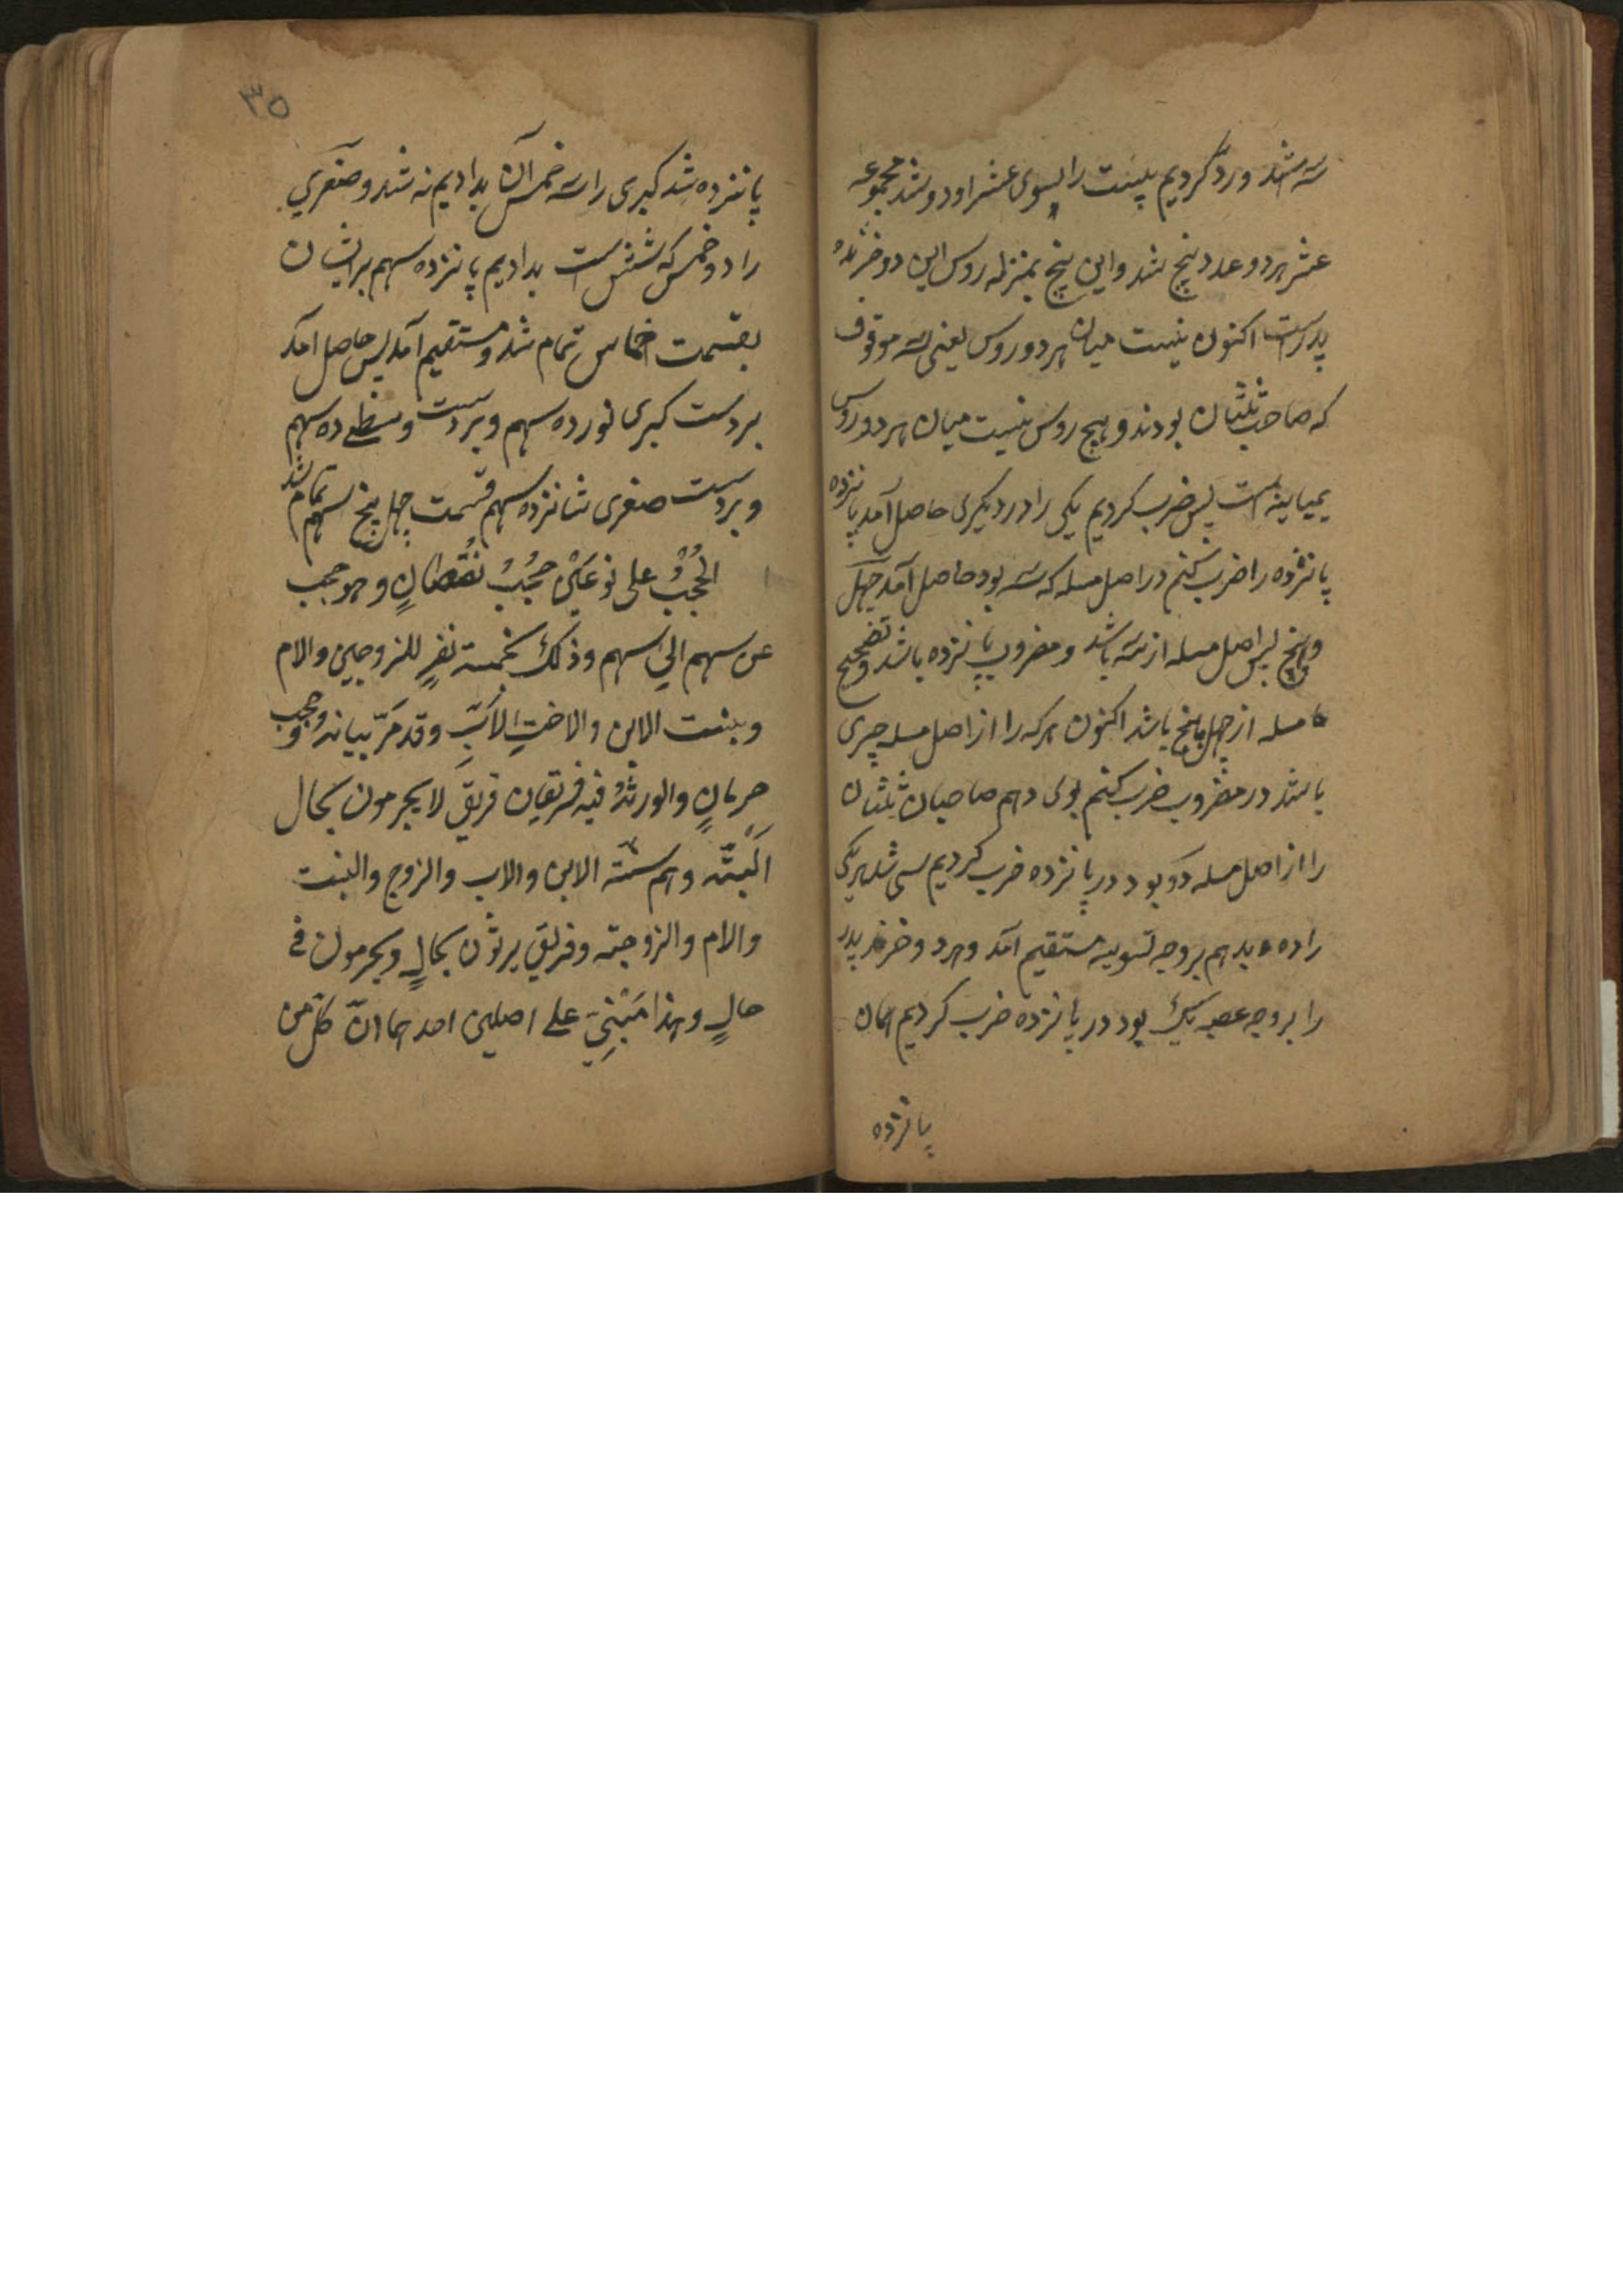 سه شد و رد کردیم بیست را بسوی عشر او دو شد مجموعه
عشر هر دو عدد پنج شد و این پنج بمنزله روس این دو خریده
پدرست اکنون نیست میان هر دو روس یعنی سه موقوف
که صاحب ثلثان بودند و هیچ روس نیست میان هر دو روس
بمباینه است پس ضرب کردیم یکی را در دیگری حاصل آمد پانزده
پانزده را ضرب کنم در اصل مسله که سه بود حاصل آمد چهل
و پنج پس اصل مسله از سه باشد و مضروب پانزده باشد و تصحیح
مسله از چهل پنج باشد اکنون هر که را از اصل مسله چیزی
باشد در مضروب ضرب کنم بوی دهم صاحبان ثلثان
را از اصل مسله دو بود در پانزده ضرب کردیم سی شد هر یکی
را ده بدهم بر وجه تسویه مستقیم آمد و هر دو خرند پدر
را بر وجه عصبه یک بود در پانزده ضرب کردیم همان
پانزده
۳۵
پانزده شد کبری را سه خمس آن بدادیم نه شد و صغری
را دو خمس که شش است بدادیم پانزده سهم بر ایشان
بقسمت اخماس تمام شد و مستقیم آمد پس حاصل آمد
بر دست کبری نورده سهم و بر دست وسطی ده سهم
و بر دست صغری شانزده سهم قسمت چهل پنج سهم تمام شد
الحُجْبُ علی نوعَیْن حجبُ نُقْصَانٍ و هو حجب
عن سهم الی سهم و ذلک لخمسة نفرٍ للزوجین والام
و بنت الابن والاختِ لاَبٍ و قد مَرّ بیانه و حجب
حِرمانٍ والورثةُ فیه فریقان فریقٌ لا یحرمون بحال
اَلْبَتَّه و هم ستّة الابن والاب والزوج والبنت
والام والزوجة و فریق یرثون بحالٍ و یحرمون فی
حالٍ و هذا مَبْنیٌ علی اصلین احدهما انّ کلّ من